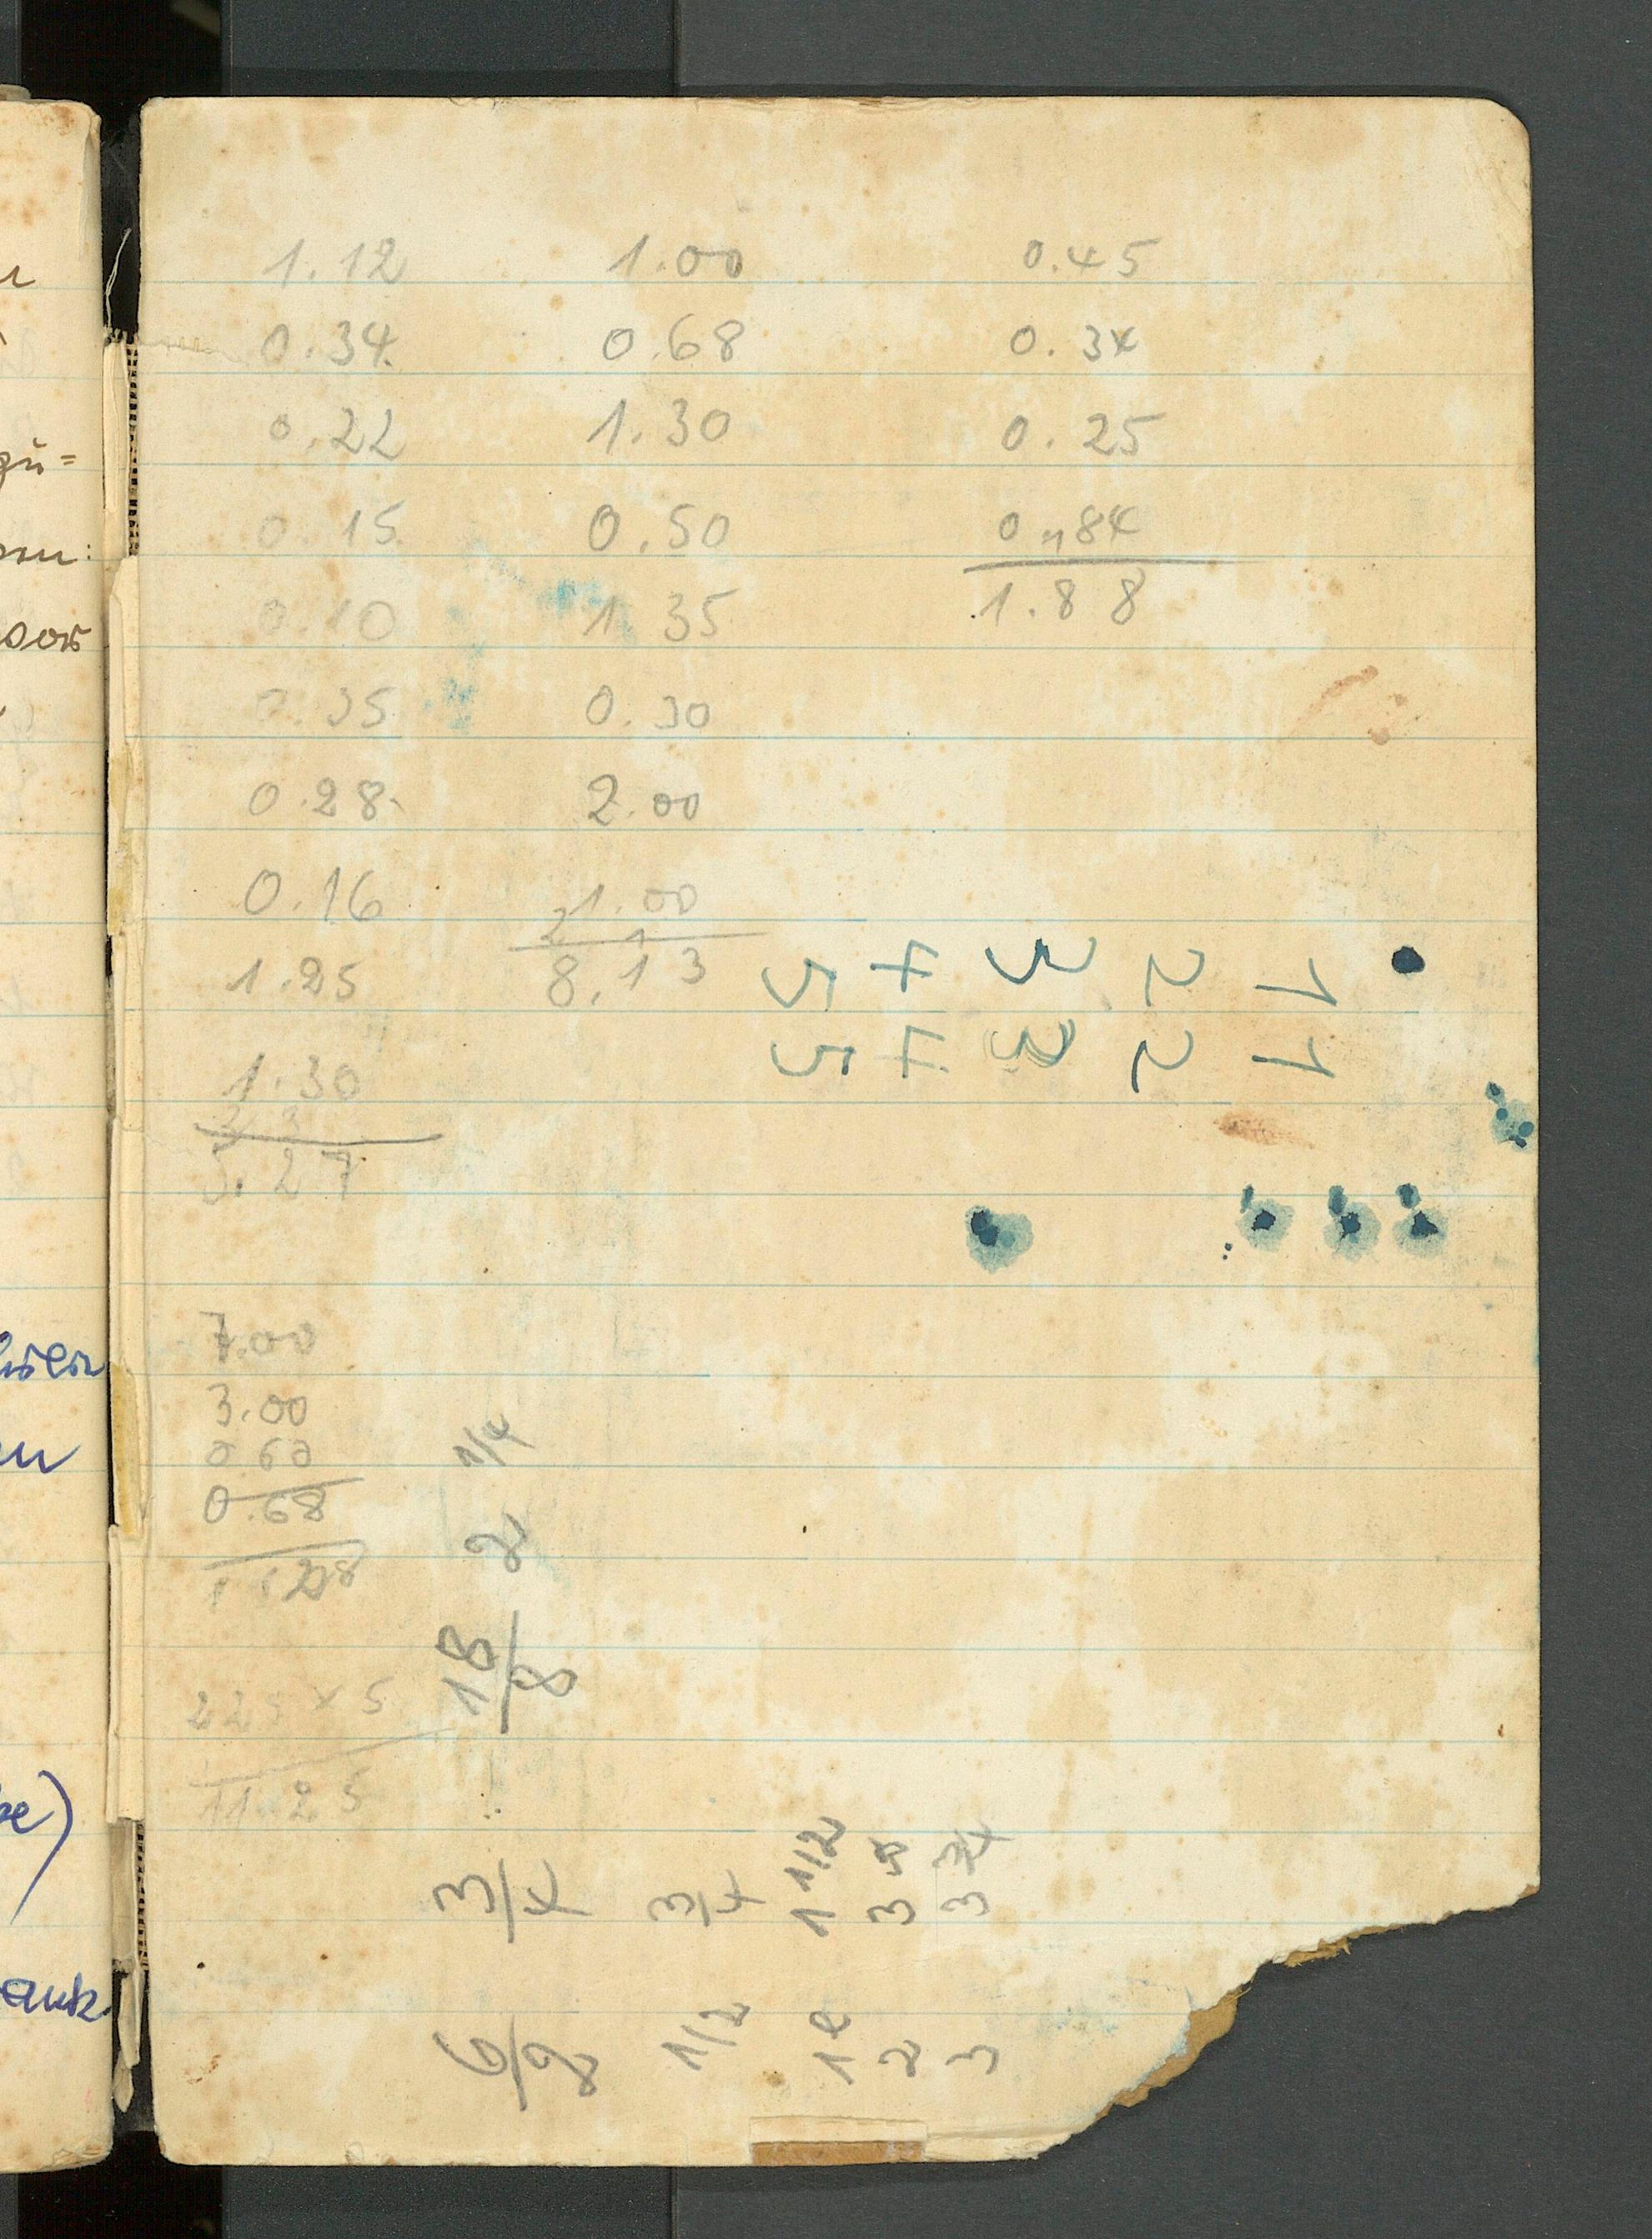 1.12
0.34
0.22
0.15
0.10
0.35
0.28
0.16
1.25
1.30
5.27
1.00
0.68
1.30
0.50
1.35
0.30
2.00
1.00
8.13
0.45
0.34
0.25
0.84
1.88
1 2 3 4 5
1 2 3 4 5
7.00
3.00
0.60
0.68
11.28
225 x 5
11.25
6/8 3/4 18/8 2 1/4
1/2 3/4
1 1 1/2
2 3
3 3 3/4
zu=
auk